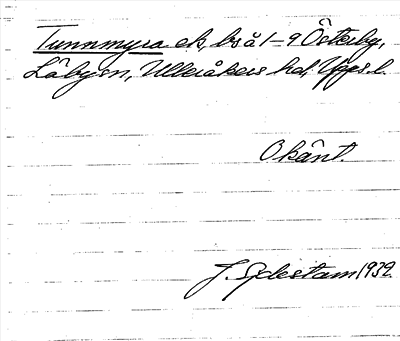 Tunnmyra ek, bså 1-9 Österby,
Läbysn, Ulleråkers hd, Upps. l.
Okänt.
J. Sjdestam 1932